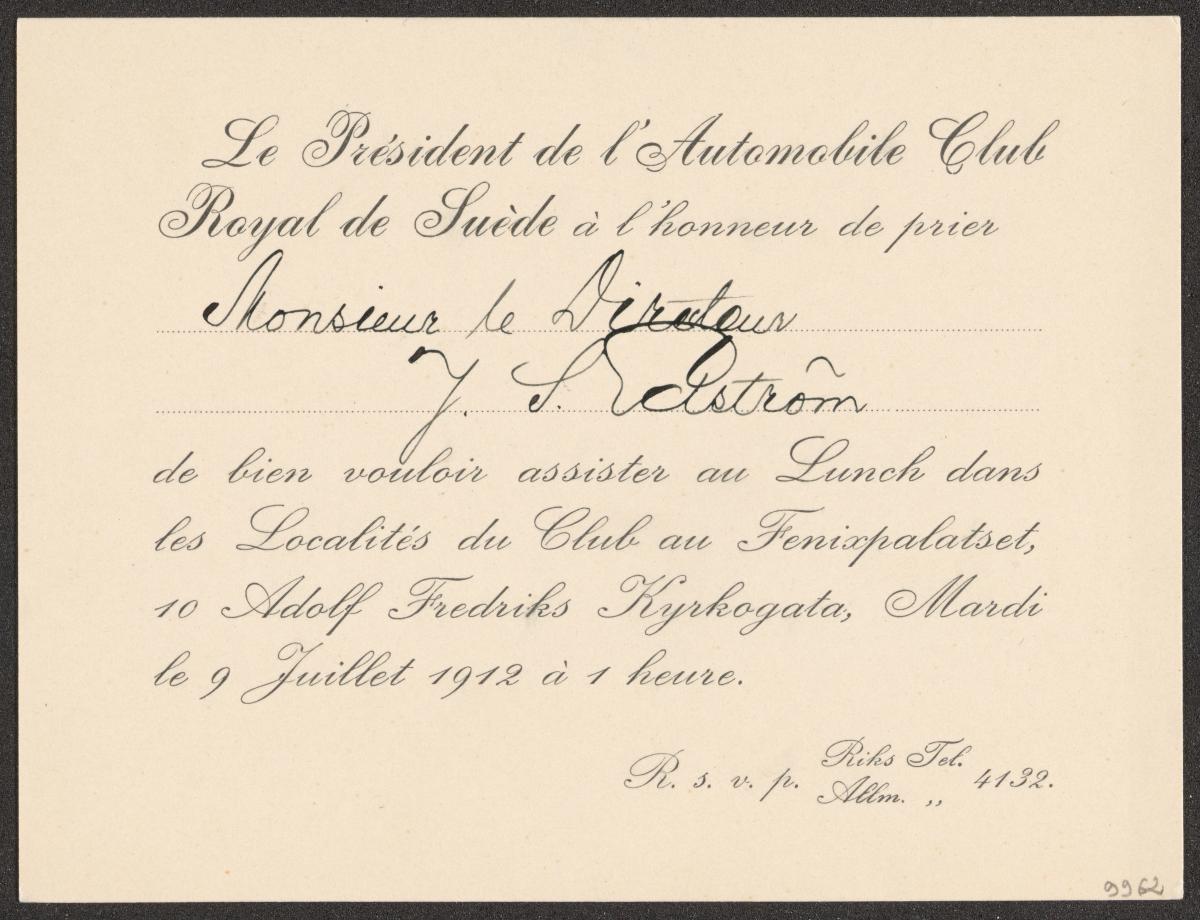 Le Président de l'Automobile Club
Royal de Suède à l'honneur de prier
Monsieur le Directeur
J. S. Edström
de bien vouloir assister au Lunch dans
les Localités du Club au Fenixpalatset,
10 Adolf Fredriks Kyrkogata, Mardi
le 9 Juillet 1912 à 1 heure.
R. s. v. p. Riks Tel. 4132.
Allm. „
9962